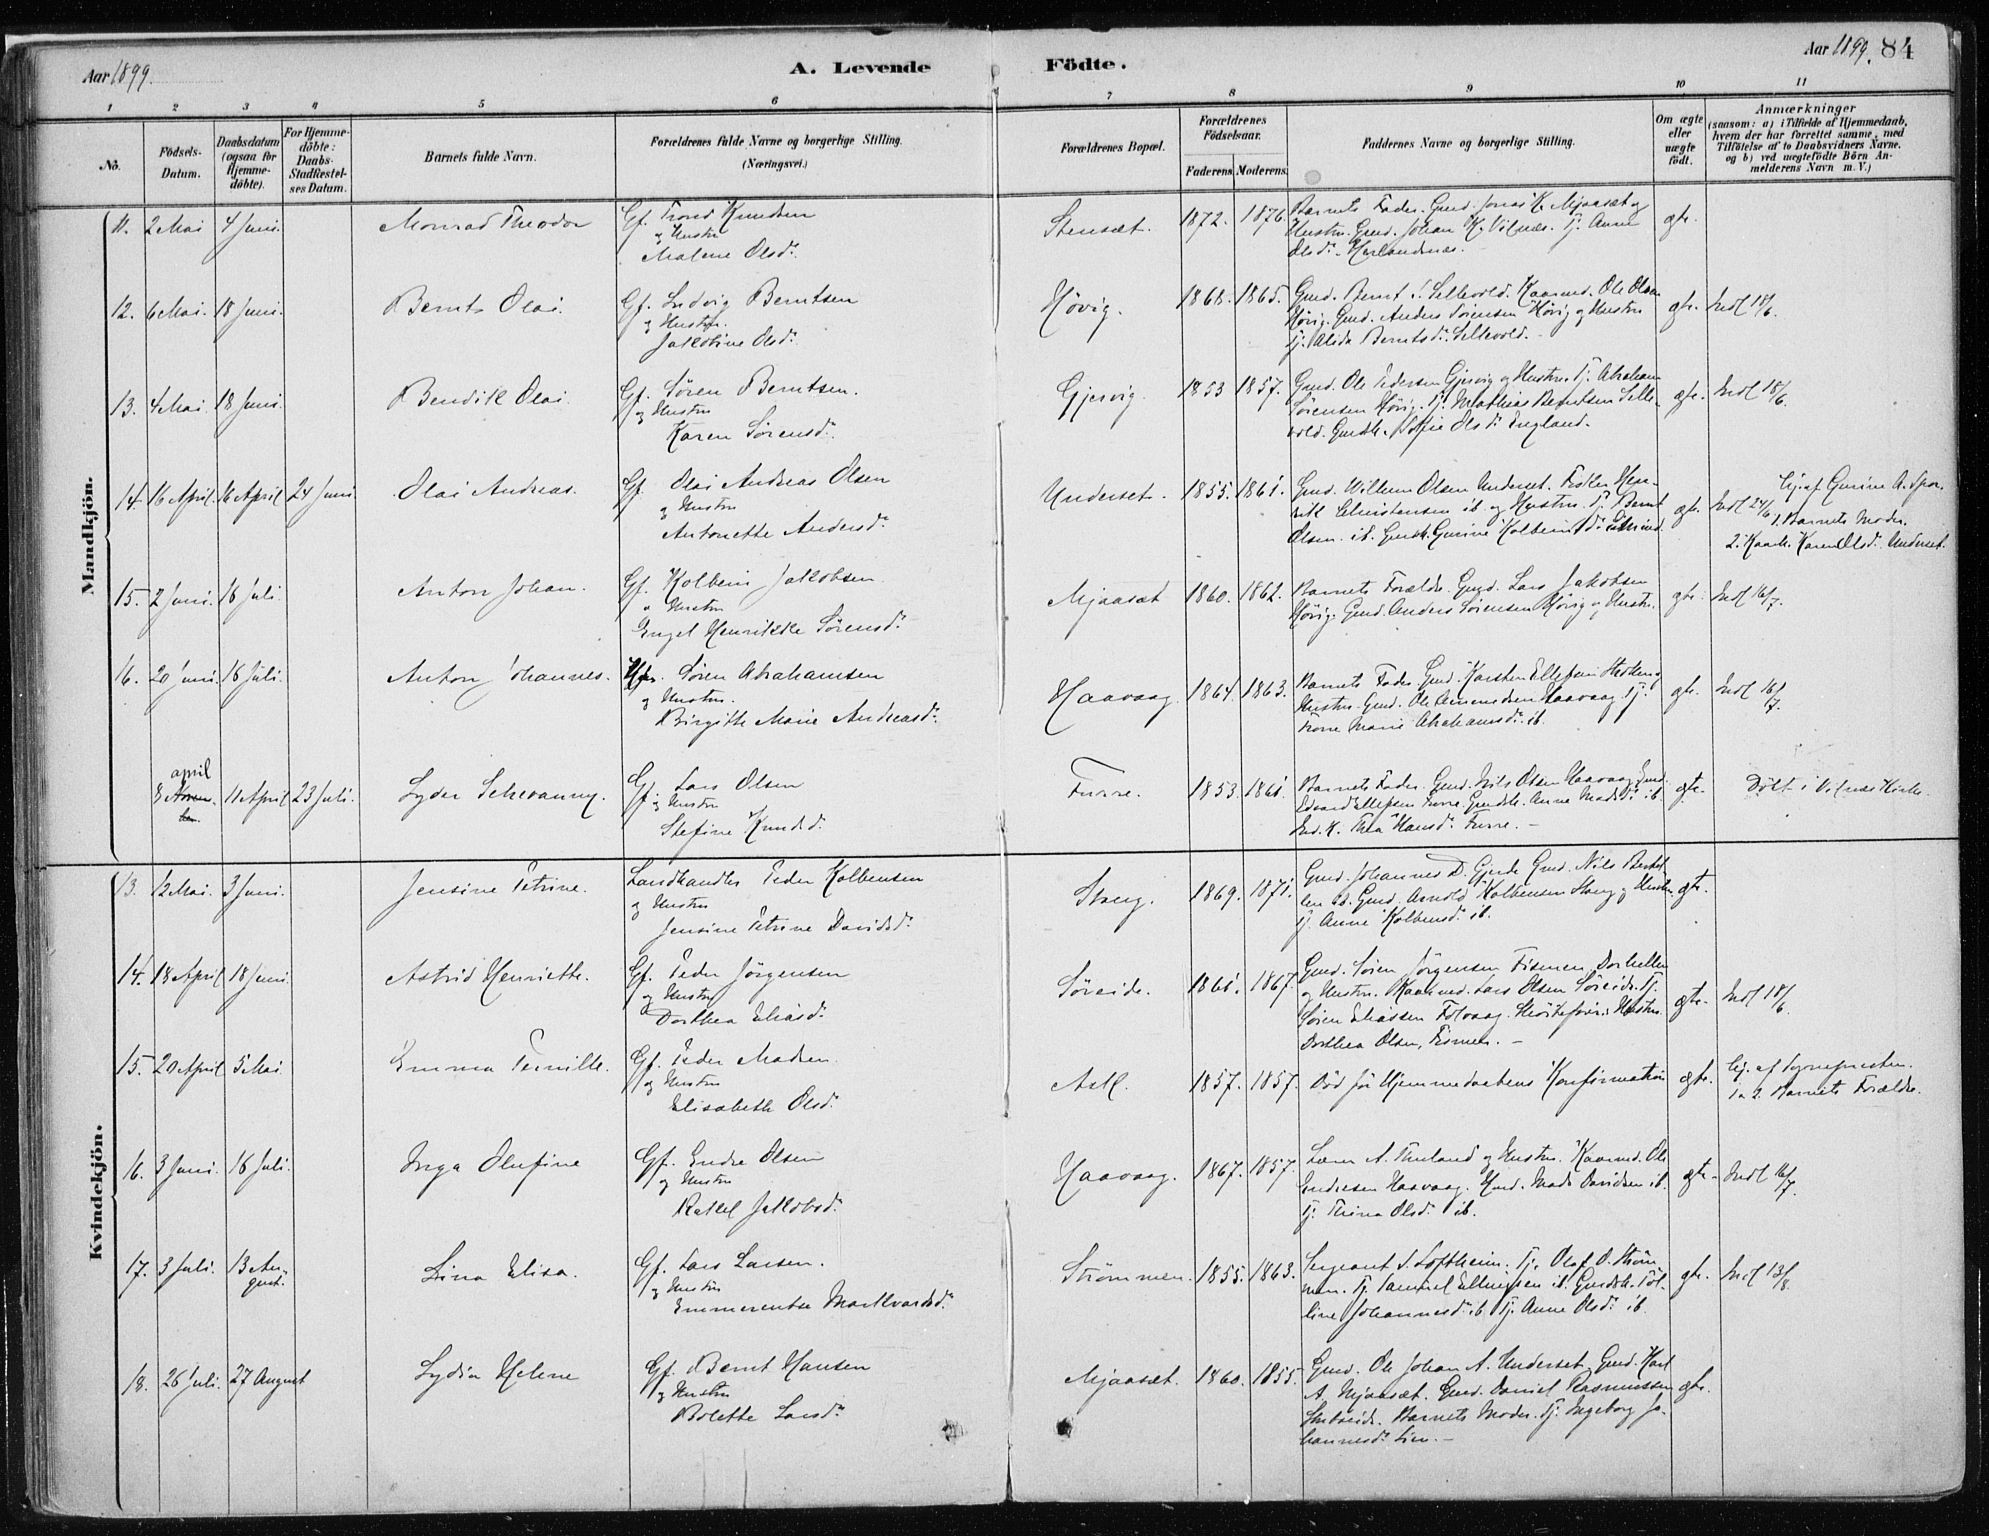 Aar 1899.
A. Levende Födte.
Aar 1899. 84
1 2 3 4 5 6 7 8 9 10 11
No.
Födsels-Datum.
Daabsdatum (ogsaa for Hjemme-döbte).
For Hjemme-döbte: Daabs-Stadfæstel-ses Datum.
Barnets fulde Navn.
Forældrenes fulde Navne og borgerlige Stilling.
(Næringsvei.)
Forældrenes Bopæl.
Forældrenes Födselsaar.
Faderens. Moderens.
Faddernes Navne og borgerlige Stilling.
Om ægte eller uægte födt.
Anmærkninger
(saasom: a) i Tilfælde af Hjemmedaab,
hvem der har forrettet samme, med
Tilföielse af to Daabsvidners Navne,
og b) ved uægtefödte Börn An-
melderens Navn m. V.)
Mandkjön.
11. 2 Mai 4 Juni. Monrad Theodor
Gf. Trond Knudsen
og Hustru
Malene Olsd.
Stensæt. 1872. 1876.
Barnets Fader. Gmd. Jonas K. Mjaasæt og
Hustru. Gmd. Johan K. Vilnæs. Tj. Anne
Olsd. Herlandsnæs.
gte.
12. 6 Mai. 18 Juni. Bernt Olai.
Gf. Ludvig Berntsen
og Hustru.
Jakobine Olsd.
Høvig. 1868. 1865.
Gmd. Bernt S. Sellevold. Kaarmd. Ole Olsen
Høvig. Gmd. Anders Sørensen Høvig og Hustru
Tj. Alida Berntsd. Sellevold.
gte. Indl 18/6.
13. 4 Mai. 18 Juni. Bendik Olai.
Gf. Søren Berntsen.
og Hustru
Karen Sørensd.
Gjervig. 1853 1857.
Gmd. Ole Pedersen Gjervig og Hustru. Tj. Abraham
Sørensen Høvig. Tj. Mathias Berntsen Selle-
vold. Gmdk. Sofie Olsd. England.
gte. Indl 18/6.
14. 16 April. 16 April 24 Juni Olai Andreas.
Gf. Olai Andreas Olsen
og Hustru
Antonette Andersd.
Underset. 1855. 1861.
Gmd. Willum Olsen Underset. Hen-
rik Christensen ib. og Hustru. Tj. Bernt
Olsen ib. Gmdk. Gurine Kolbeinsd.
gte. Indl 24/6
Hj. af Gurine A.
1. Barnets Moder.
2. Kaark. Karen Olsd. Underset.
15. 2 Juni. 16 Juli. Anton Johan.
Gf. Kolbein Jakobsen.
og Hustru
Engel Henrikke Sørensd.
Mjaasæt 1860. 1862.
Barnets Forældre. Gmd. Lars Jakobsen
Høvig. Gmd. Anders Sørensen Høvig og Hustru.
gte. Indl 16/7.
16. 20 Juni. 16 Juli. Anton Johannes.
Søren Abrahamsen
og Hustru.
Birgitte Marie Andreasd.
Haavaag 1864. 1863.
Barnets Fader. Gmd. Karsten Ellefsen
Hustru. Gmd. Ole Haavaag. Tj.
Marie Abrahamsd. ib.
gte. Indl 16/7
april
8 11 April 23 Juli. Lyder Schevanny.
Gf. Lars Olsen
og Hustru
Stefine Knudsd.
Furre. 1853. 1861.
Barnets Fader. Gmd. Nils Olsen Haavaag. Gmd.
Edvard Ellefsen Furre. Gmdk. Anne Madsd. ib.
Thea Hansd. Furre.
gte. Döbt i Vilnæs Kirke.
Kvindekjön.
13. 12 Mai. 3 Juni. Jensine Petrine.
Landhandler Peder Kolbensen
og Hustru
Jensine Petrine Davidsd.
Steng. 1869. 1871.
Gmd. Johannes D. Gjerde Gmd. Nils
Gmd. Arnold Kolbensen og Hustru.
Tj. Anne Kolbensd. ib.
gte.
14. 18 April 18 Juni. Astrid Henriette.
Gf. Peder Jörgensen
og Hustru
Dorthea Eliasd.
Søreide. 1861. 1867.
Gmd. Sören Jörgensen
og Hustru. Kaarmd. Lars Olsen Søreide. Tj.
Sören Eliassen Hustru.
Dorthea Olsen,
gte. Indl 18/6
15. 20 April 5 Mai. Emma Pernille.
Gf. Peder Madsen
og Hustru
Elisabeth Olsd.
Ask. 1857. 1857.
Död för Hjemmedaabens Konfirmation
gte. Hj. af Sognepresten.
1 2. Barnets Forældre.
16. 3 Juni. 16 Juli. Inga Olufine
Gf. Endre Olsen
og Hustru
Rakel Jakobsd.
Haavaag. 1867. 1857.
Lærer A. og Hustru. Kaarmd. Ole
Endresen Haavaag. Gmd. Mads Davidsen ib.
Tj. Olsd. ib.
gte. Indl 16/7.
17. 3 Juli. 13 Au-
gust. Lina Elisa.
Gf. Lars Larsen.
og Hustru
Emmerentse Markvardsd.
Strømmen. 1855. 1863.
Sergeant S. Loftheim. Tj. Olaf O. Strøm-
men. Tj. Samuel Ellingsen ib. Gmdk.
Johannesd. ib. Tj. Anne Olsd. ib.
gte. Indl 13/8
18. 26 Juli. 27 August Lydia Helene
Gf. Bernt Hansen
og Hustru
Bolette Larsd.
Mjaasæt. 1860. 1855.
Gmd. Ole Johan A. Underset. Gmd. Karl
A. Mjaasæt. Gmd. Daniel Rasmussen
Barnets Moder. Tj. Ingeborg Jo-
hannesd. Lien.
gte.